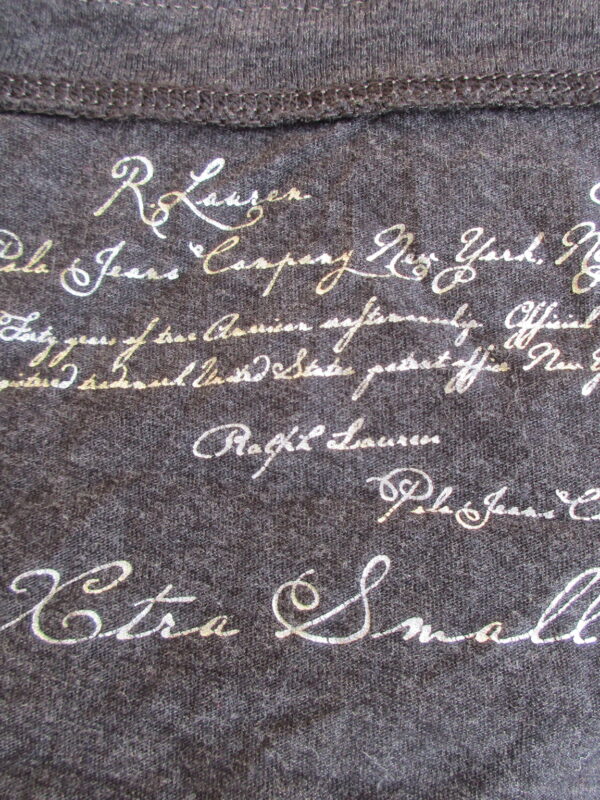 R. Lauren
Polo Jeans Company New York, N
Forty years of true American craftsmanship Official
registered trademark United States patent office New Y
Ralph Lauren
Polo Jeans C
Xtra Small